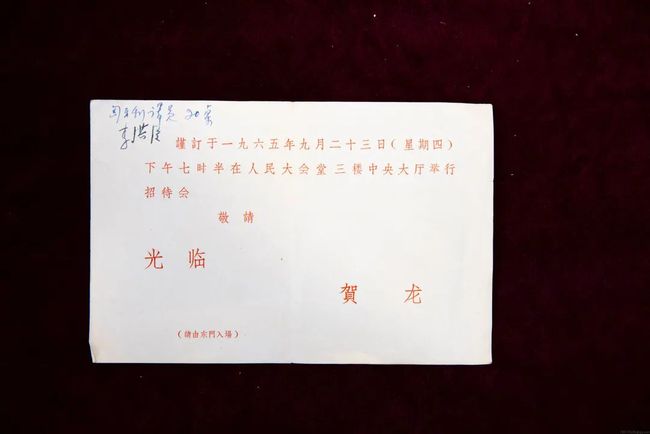 匈牙利译员 20桌
李洪臣
謹訂于一九六五年九月二十三日（星期四）
下午七时半在人民大会堂三楼中央大厅举行
招待会
敬請
光临
賀龙
（請由东門入場）